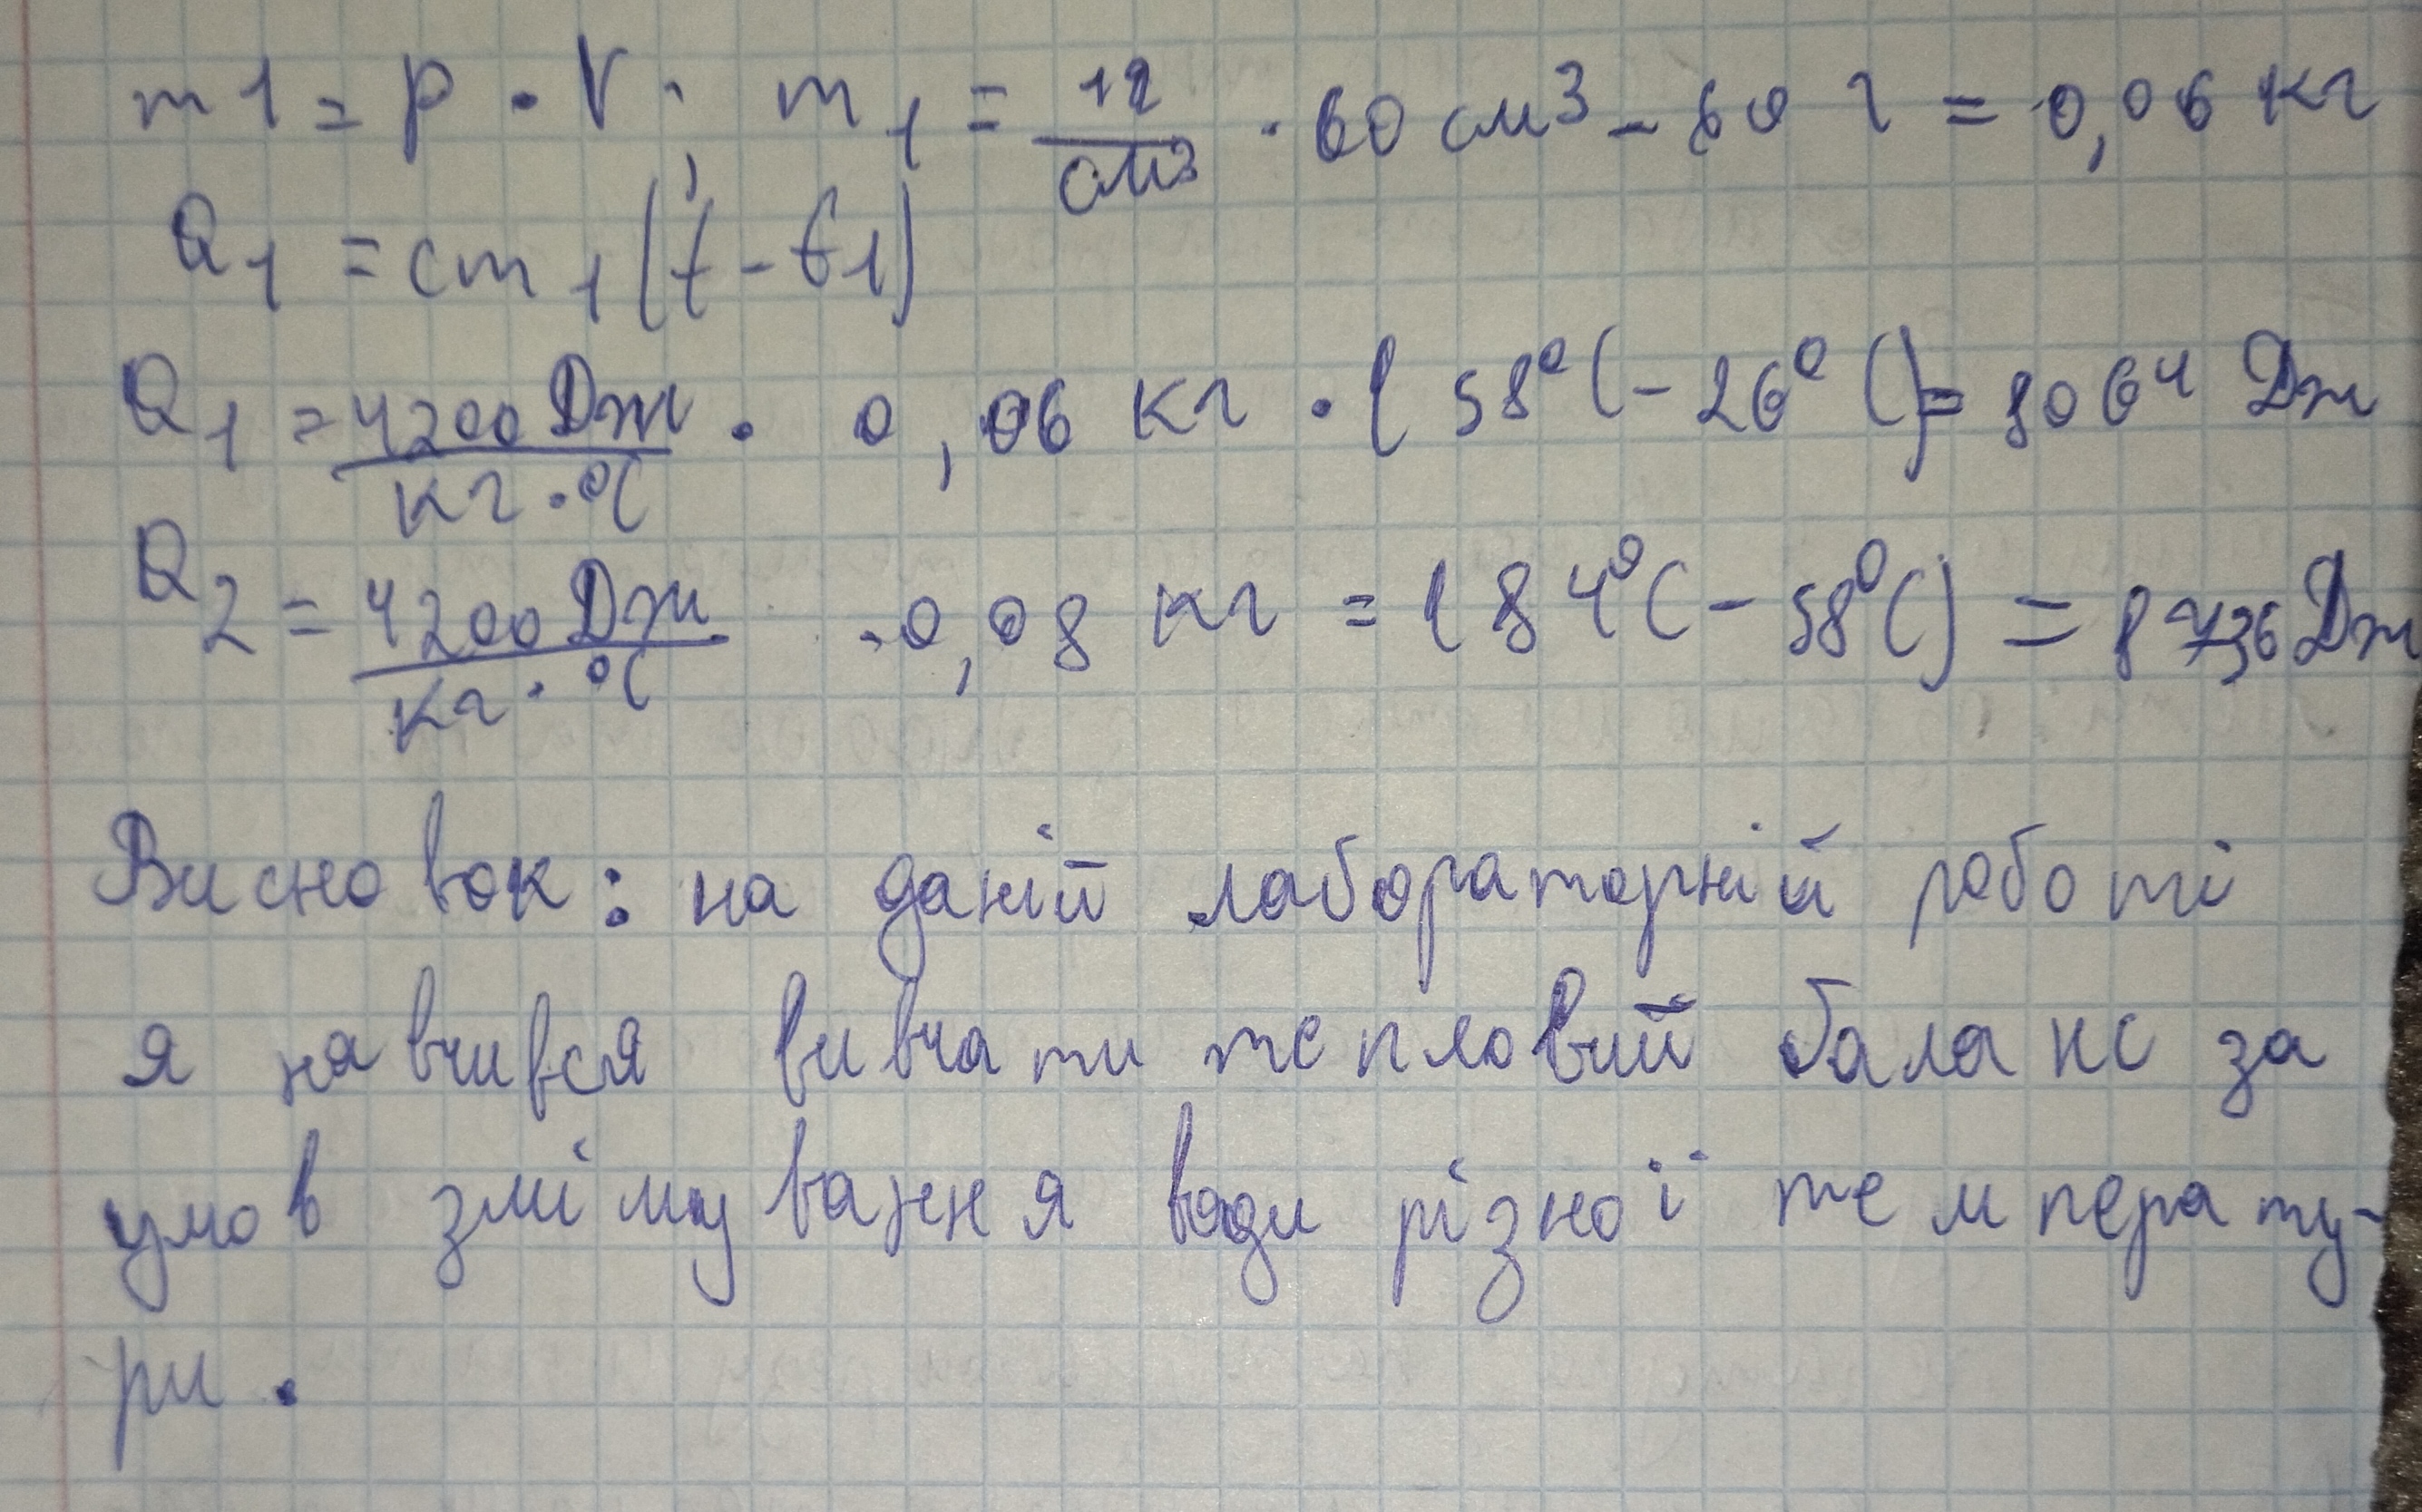 m1 = p · V; m1 = 1г/см3 · 60 см3 - 60 г = 0,06 кг
Q1 = cm1(t - t1)
Q1 = 4200 Дж/кг · °C · 0,06 кг · (58°C - 26°C) = 8064 Дж
Q2 = 4200 Дж/кг · °C · 0,08 кг = (84°C - 58°C) = 8736 Дж
Висновок: на даній лабораторній роботі
я навчився вивчати тепловий баланс за
умов змімування води різної температу-
ри.